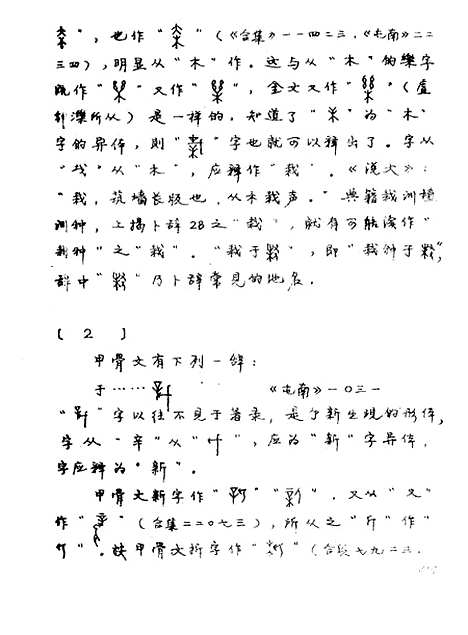 "，也作" "（《合集》一一四二三，《屯南》二二
三四），明显从"木"作。这与从"木"的乐字
既作" "又作" "，金文又作" "（虘
钟泺所从）是一样的，知道了" "为"木"
字的异体，则" "字也就可以辨出了。字从
"戈"从"木"，应辨作"栽"。《说文》：
"栽，筑墙长版也，从木𢦏声。"典籍栽训植
训种，上揭卜辞28之"栽"，就有可能读作"
栽种"之"栽"。"栽于 "，即"栽种于 "，
辞中" "乃卜辞常见的地名。
［2］
甲骨文有下列一辞：
于…… 《屯南》一〇三一
" "字以往不见于著录，是个新出现的形体，
字从"辛"从" "，应为"新"字异体，
字应辨为"新"。
甲骨文新字作" "" "，又从"又"
作" "（合集二二〇七三），所从之"斤"作"
"。故甲骨文折字作" "（合集七九二三，